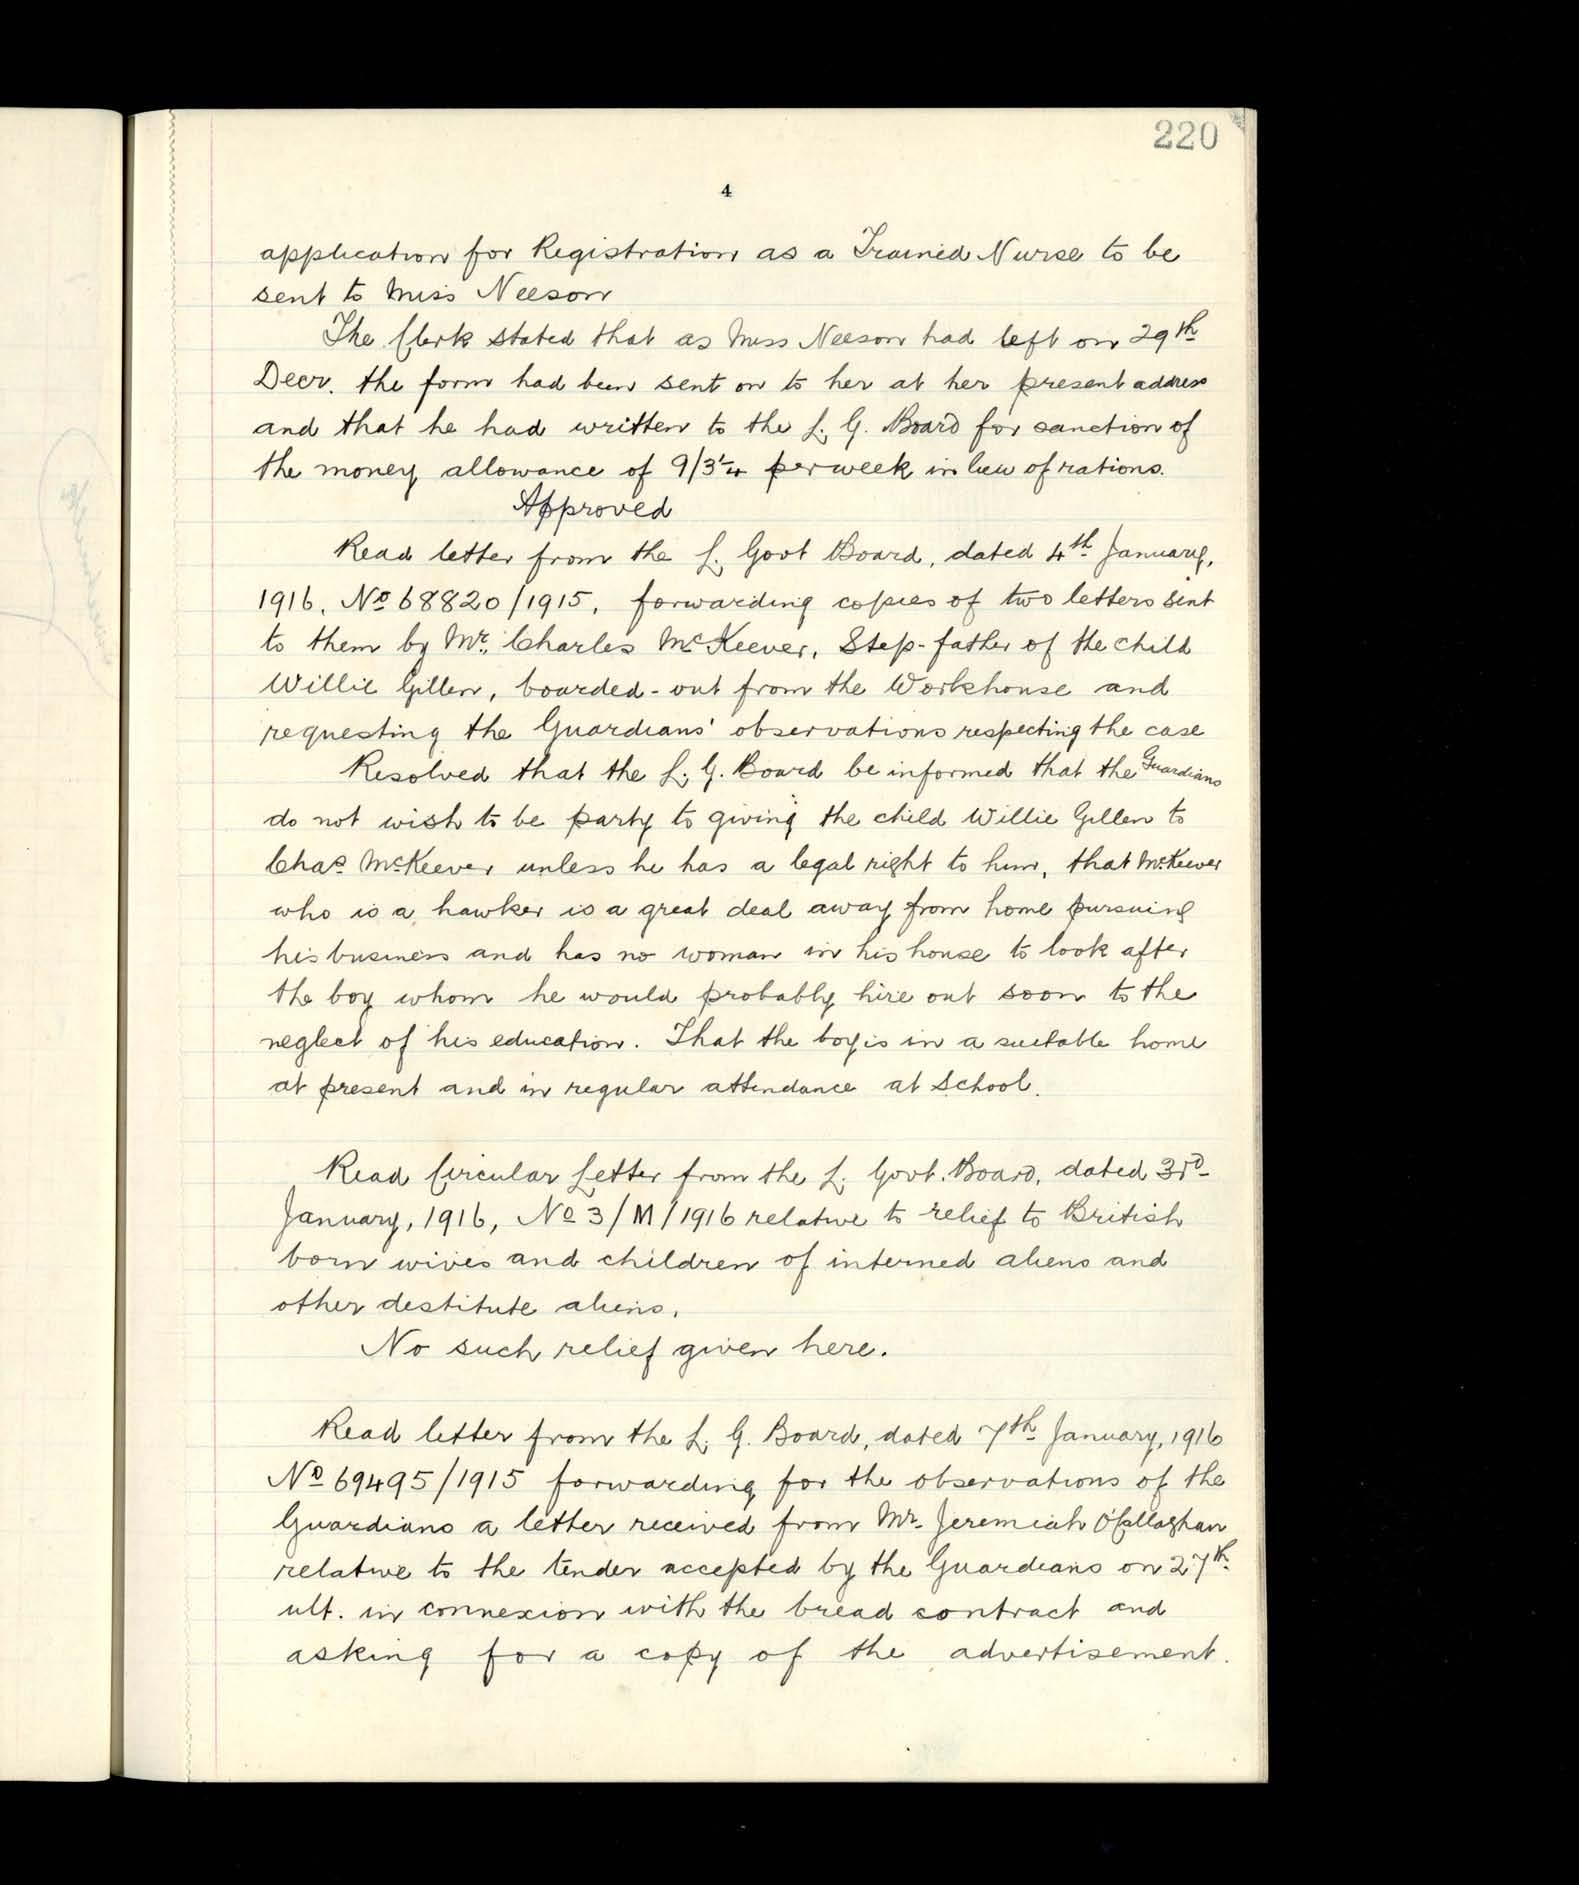 220
4
application for Registration as a Trained Nurse to be
sent to Miss Neeson
The Clerk stated that as Miss Neeson had left on 29th
Decr. the form had been sent on to her at her present address
and that he had written to the L. G. Board for sanction of
the money allowance of 9/3¼ per week in lieu of rations.
Approved
Read letter from the L. Govt Board, dated 4th January,
1916, No 68820/1915, forwarding copies of two letters sent
to them by Mr. Charles McKeever, Step-father of the child
Willie Gillen, boarded-out from the Workhouse and
requesting the Guardians' observations respecting the case
Resolved that the L. G. Board be informed that the Guardians
do not wish to be party to giving the child Willie Gillen to
Chas McKeever unless he has a legal right to him, that McKeever
who is a hawker is a great deal away from home pursuing
his business and has no woman in his house to look after
the boy whom he would probably hire out soon to the
neglect of his education. That the boy is in a suitable home
at present and in regular attendance at School.
Read Circular Letter from the L. Govt. Board, dated 3rd
January, 1916, No 3/M/1916 relative to relief to British
born wives and children of interned aliens and
other destitute aliens.
No such relief given here.
Read letter from the L. G. Board, dated 7th January, 1916
No 69495/1915 forwarding for the observations of the
Guardians a letter received from Mr. Jeremiah O'Callaghan
relative to the tender accepted by the Guardians on 27th
ult. in connexion with the bread contract and
asking for a copy of the advertisement.